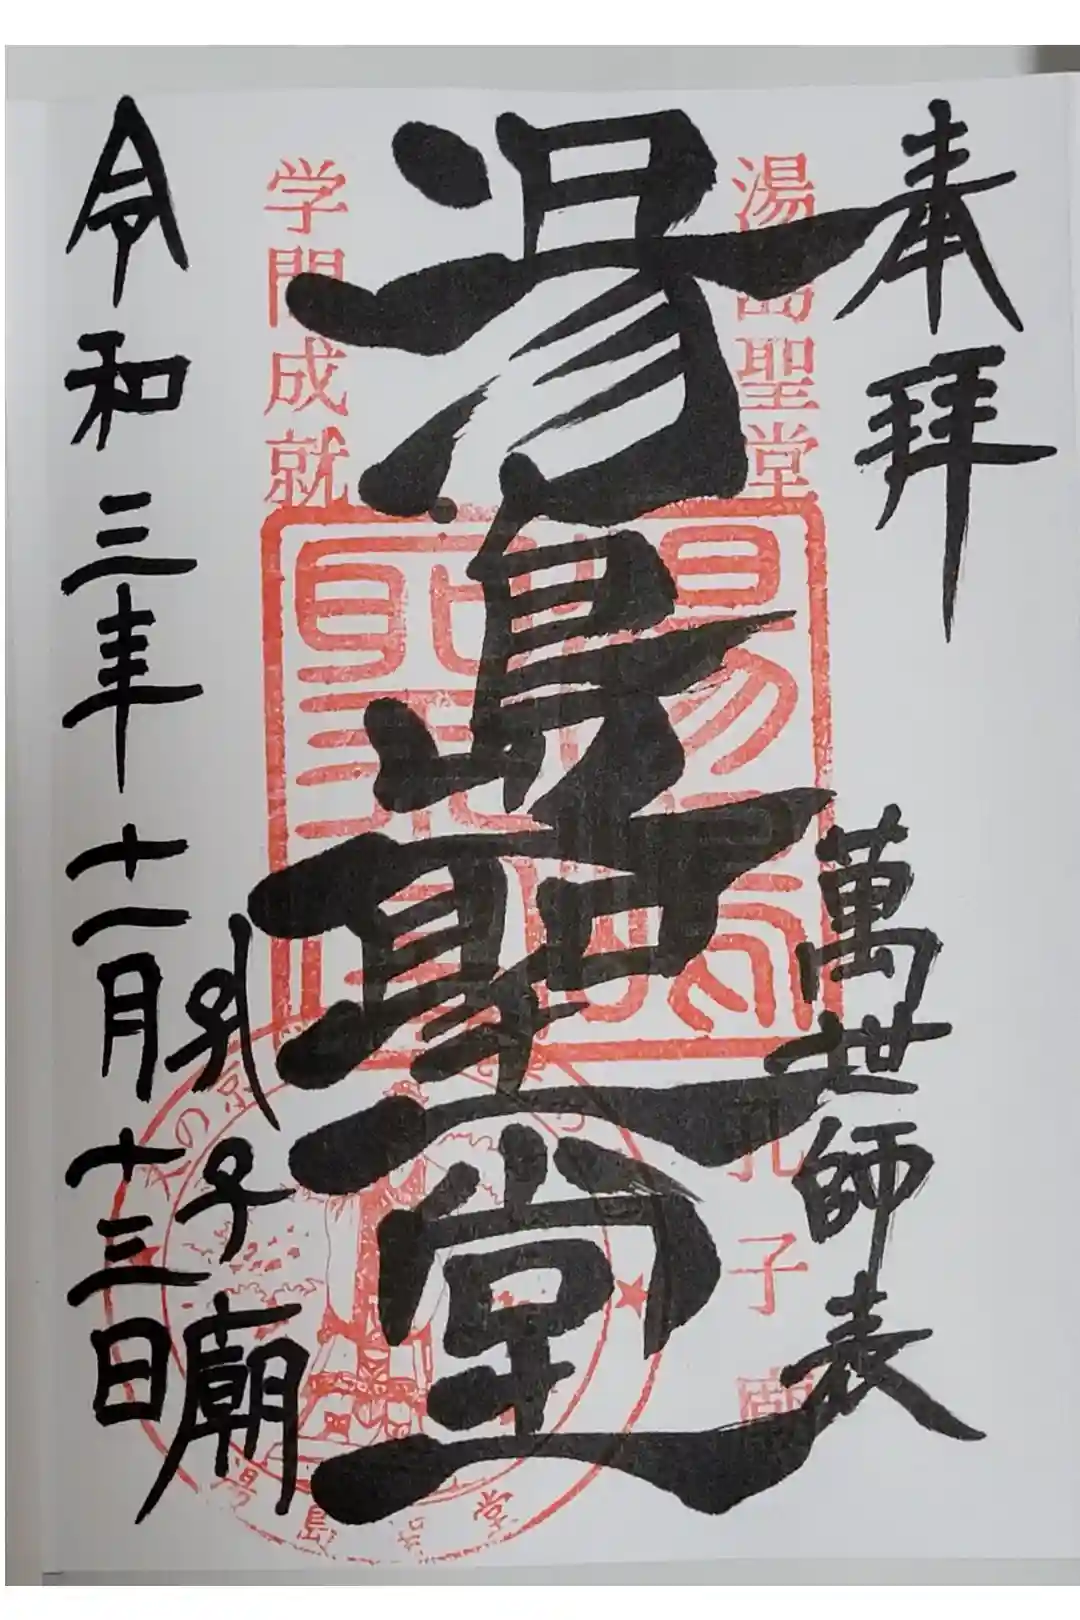 奉拝
萬世師表
湯島聖堂
孔子廟
湯島聖堂
学問成就
孔子廟
令和三年十一月十三日
湯島聖堂